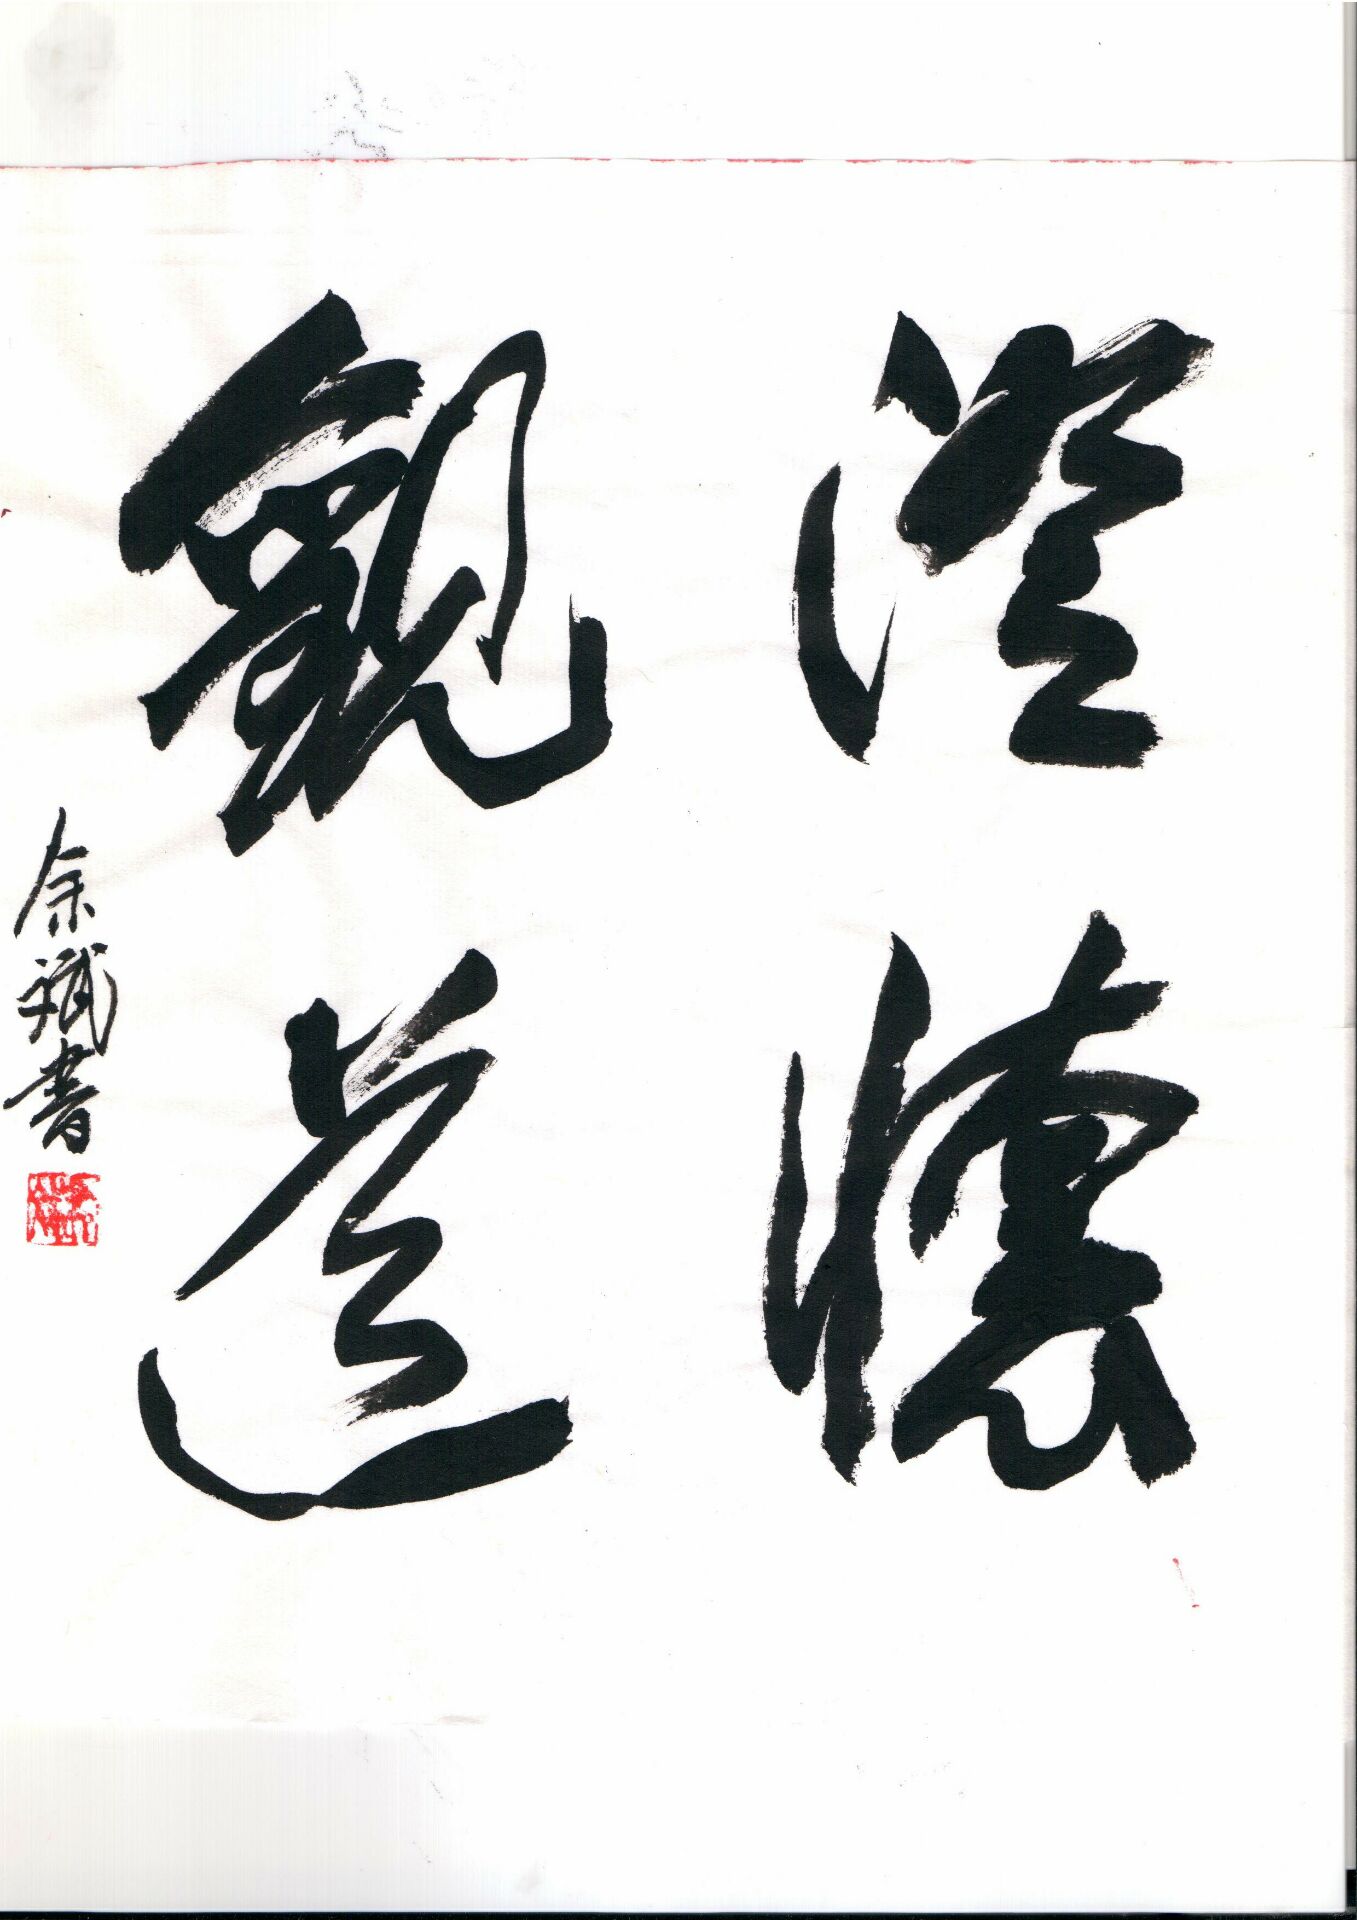 澄懷
觀道
余斌書